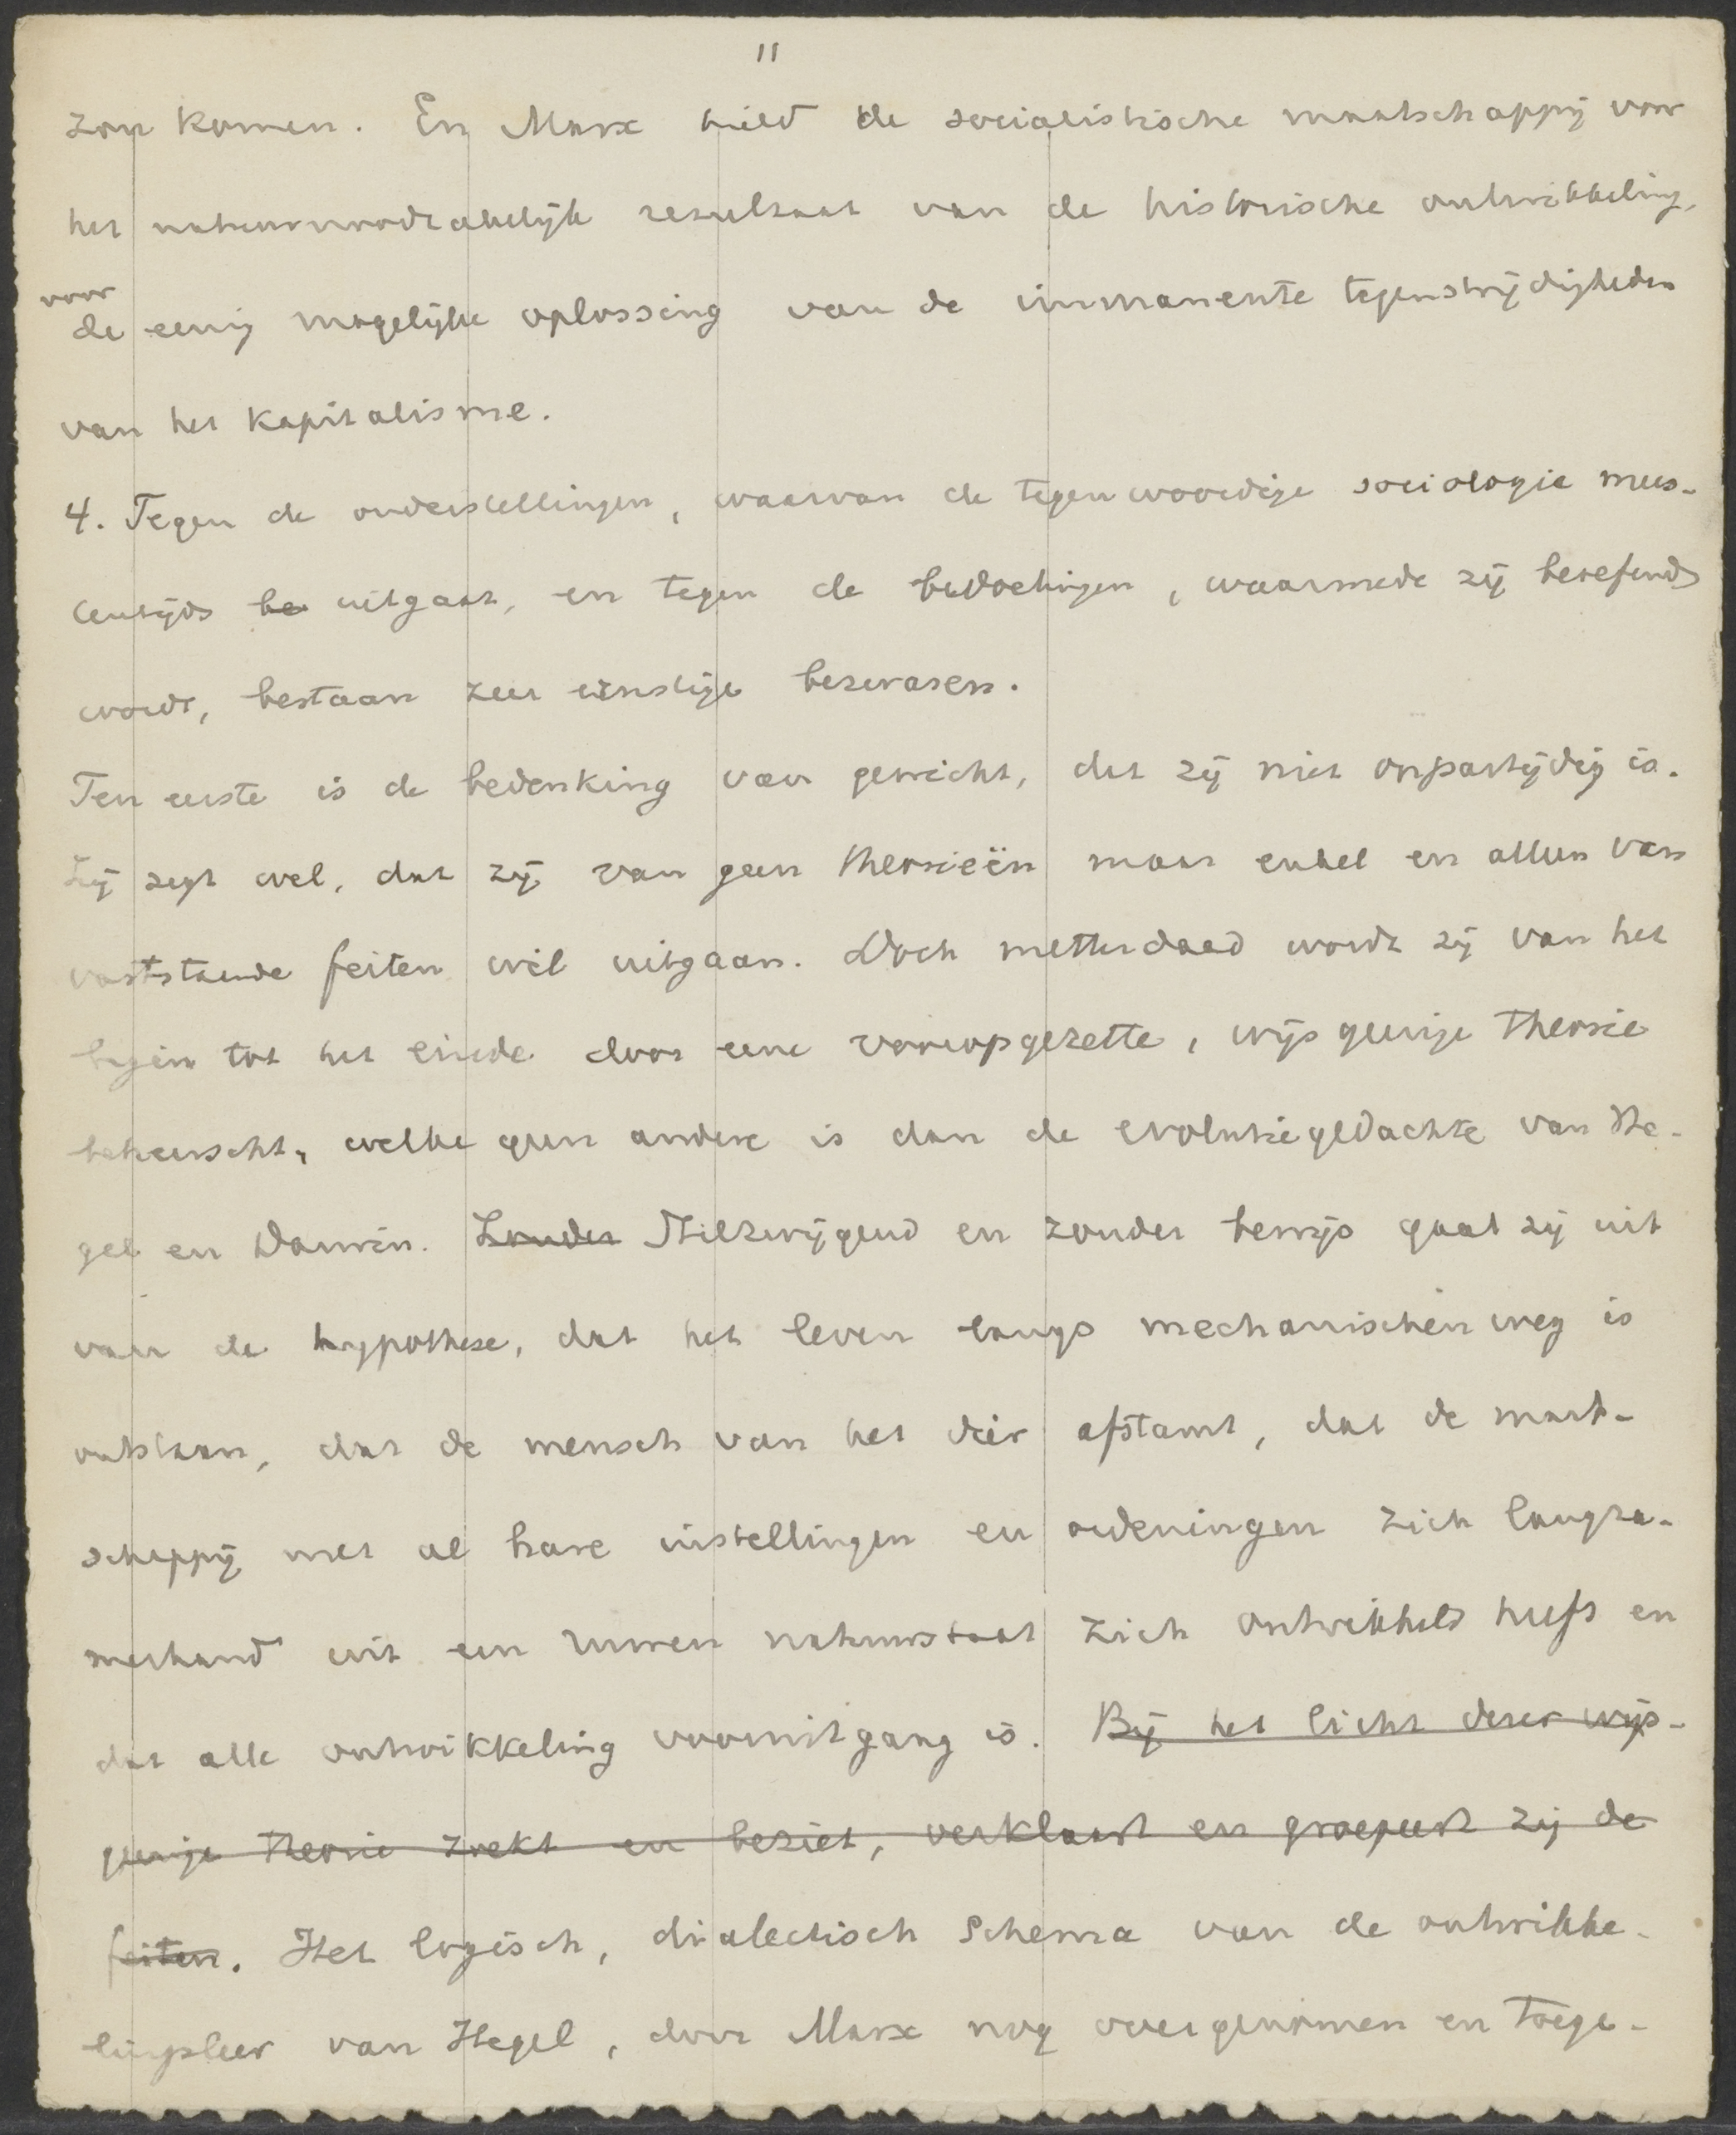 11
zou komen. En Marx hield de socialistische maatschappij voor
het natuurnoodzakelijk resultaat van de historische ontwikkeling,
voor
de eenig mogelijke oplossing van de immanente tegenstrijdigheden
van het kapitalisme.
4. Tegen de onderstellingen, waarvan de tegenwoordige sociologie mees-
tentijds be uitgaat, en tegen de bedoelingen, waarmede zij beoefend
wordt, bestaan zeer ernstige bezwaren.
Ten eerste is de bedenking van gewicht, dat zij niet onpartijdig is.
Zij zegt wel, dat zij van geen theorieën maar enkel en alleen van
vaststaande feiten wil uitgaan. Doch metterdaad wordt zij van het
begin tot het einde door eene vooropgezette, wijsgeerige theorie
beheerscht, welke geen andere is dan de evolutiegedachte van He-
gel en Darwin. Zonder Stilzwijgend en zonder bewijs gaat zij uit
van de hypothese, dat het leven langs mechanischen weg is
ontstaan, dat de mensch van het dier afstamt, dat de maat-
schappij met al hare instellingen en ordeningen zich langza-
merhand uit een ruwen natuurstaat zich ontwikkeld heeft en
dat alle ontwikkeling vooruitgang is. Bij het licht dezer wijs-
geerige theorie zoekt en beziet, verklaart en groepeert zij de
feiten. Het logisch, dialectisch schema van de ontwikke-
lingsleer van Hegel, door Marx nog overgenomen en toege-